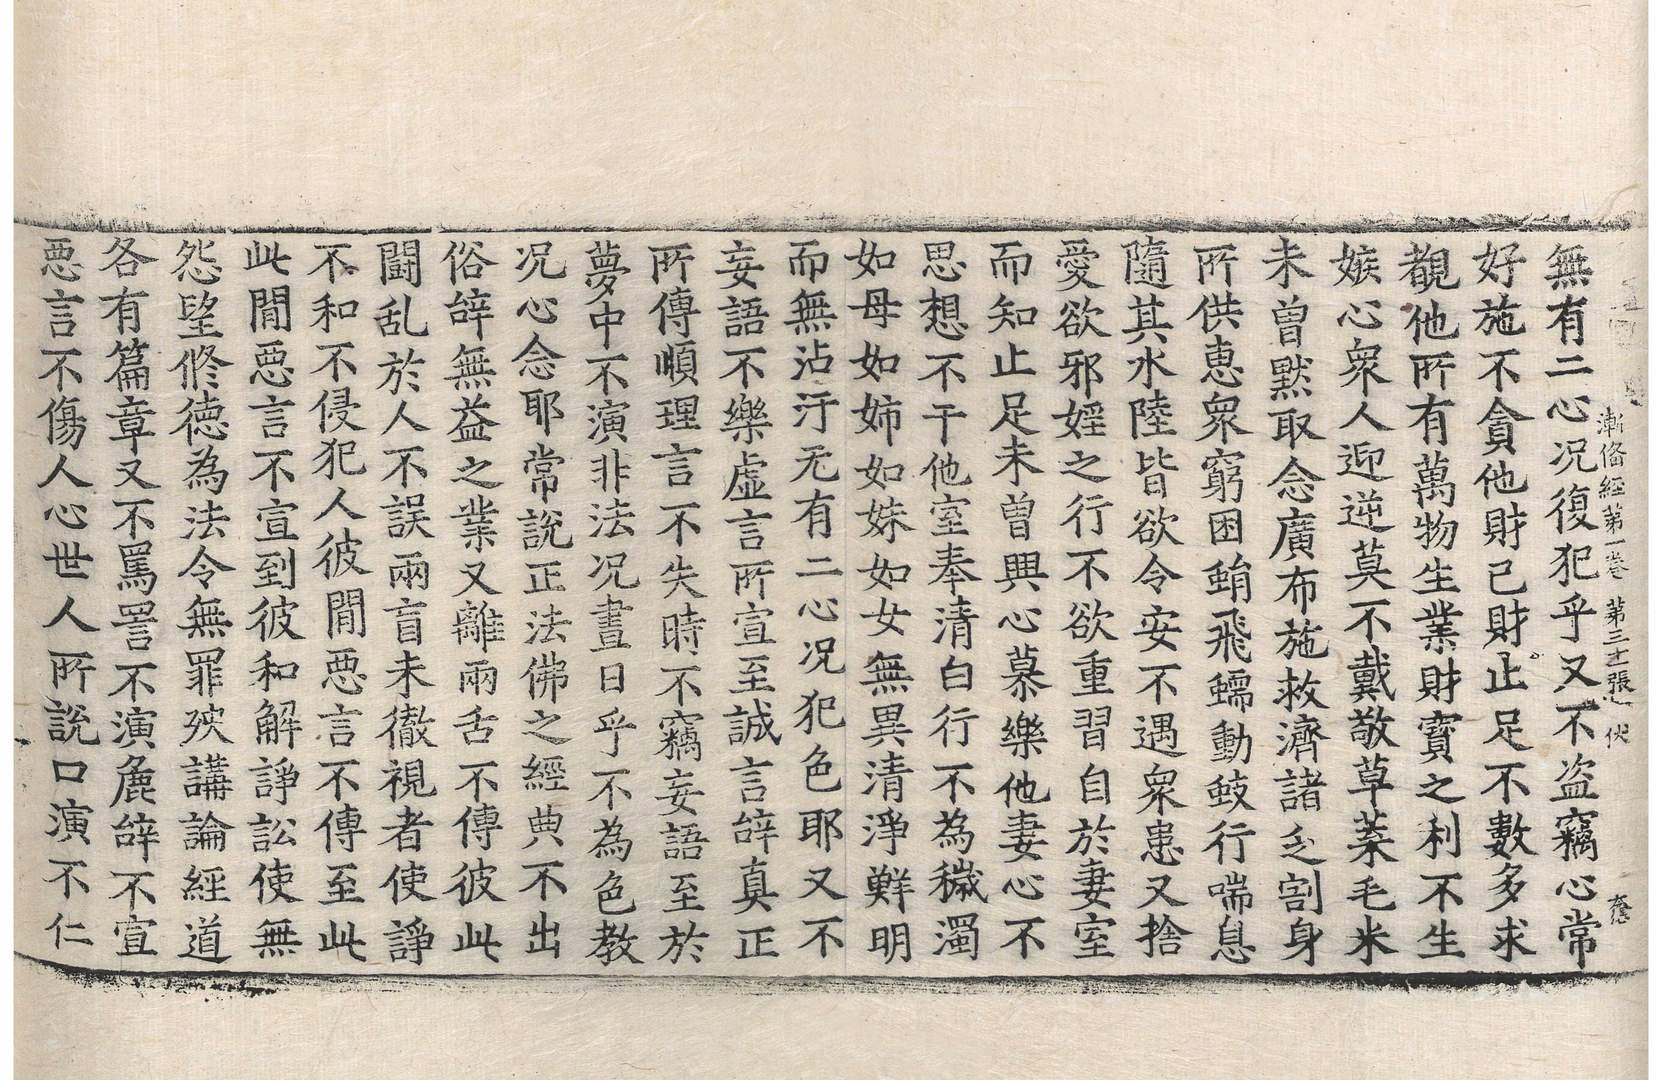 漸俻經第一卷 第三十張 伏
無有二心况復犯乎又不盗竊心常
好施不貪他財己財止足不數多求
覩他所有萬物生業財寳之利不生
嫉心衆人迎逆莫不戴敬草葉毛米
未曽黙取念廣布施救濟諸乏割身
所供恵衆窮困蜎飛蠕動蚑行喘息
隨其水陸皆欲令安不遇衆患又捨
愛欲邪婬之行不欲重習自於妻室
而知止足未曽興心慕樂他妻心不
思想不干他室奉清白行不為穢濁
如母如姉如妹如女無異清淨鮮明
而無沾汙无有二心况犯色耶又不
妄語不樂虚言所宣至誠言辞真正
所傳順理言不失時不竊妄語至於
夢中不演非法况晝日乎不為色教
况心念耶常說正法佛之經典不出
俗辞無益之業又離兩舌不傳彼此
闘乱於人不誤兩盲未徹視者使諍
不和不侵犯人彼閒惡言不傳至此
此閒惡言不宣到彼和解諍訟使無
怨望修徳為法令無罪殃講論經道
各有篇章又不罵詈不演麁辞不宣
惡言不傷人心世人所說口演不仁